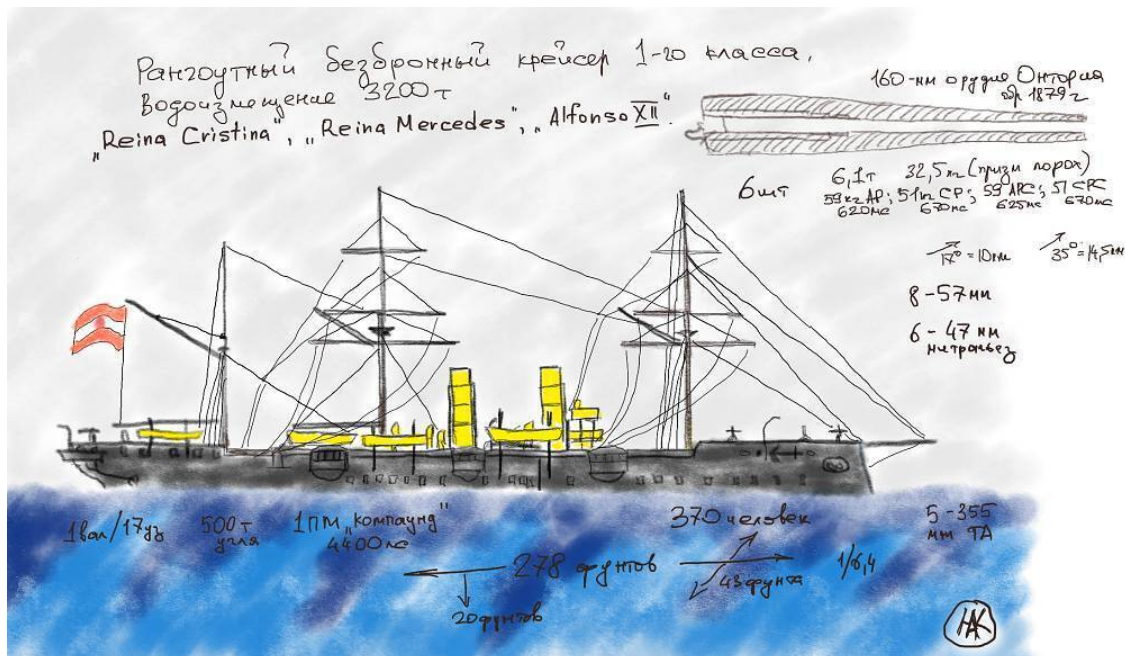 Рангоутный безбронный крейсер 1-го класса.
Водоизмещение 3200т
„Reina Cristina", „Reina Mercedes", „Alfonso XII".
160-мм орудие Онтория
обр 1879 г
6шт
6,1т 32,5кг (призм порох)
59кг AP; 51кг CP; 59 APC; 51 CPC
620мс 670мс 625мс 670мс
17° = 10км 35° = 14,5км
8-57мм
6 - 47 мм
митральез
1вал/17уз
500т
угля
1ПМ „компаунд"
4400лс
370 человек
5-355
мм ТА
278 фунтов
43 фунта
1/6,4
20фунтов
НАК